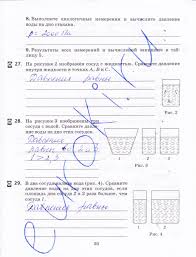 8. Выполните аналогичные измерения и вычислите давление воды на дно стакана.
9. Результаты всех измерений и вычислений запишите в таблицу 5.
27. На рисунке 2 изображён сосуд с жидкостью. Сравните давление внутри жидкости в точках А, В и С.
Давления равны
Рис. 2
28. На рисунке 3 изображены три сосуда с водой. Сравните давление воды на дно этих сосудов.
Давление
1
2
3
Рис. 3
29. В два сосуда налита вода (рис. 4). Сравните давление воды на дно этих сосудов, если площадь дна сосуда 2 в 2 раза больше, чем сосуда 1.
Давления равны
1
2
Рис. 4